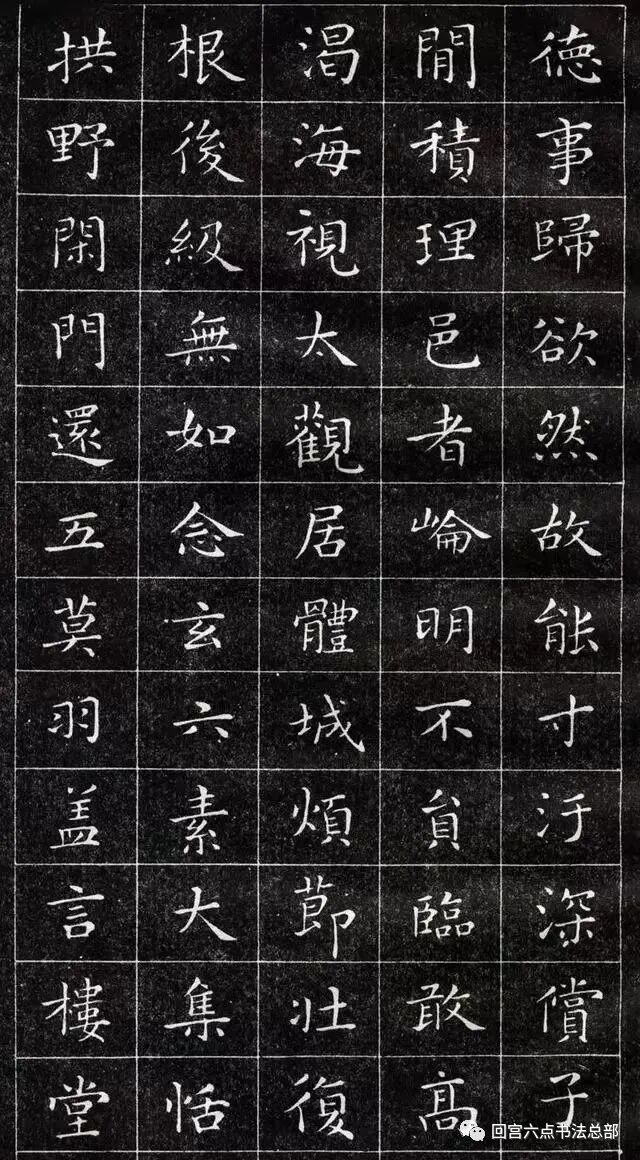 德事歸欲然故能寸汙深償子
閒積理邑者崘明不負臨敢高
渴海視太觀居體城煩節壯復
根後級無如念玄六素大集恬
拱野閑門還五莫羽盖言樓堂
回宫六点书法总部